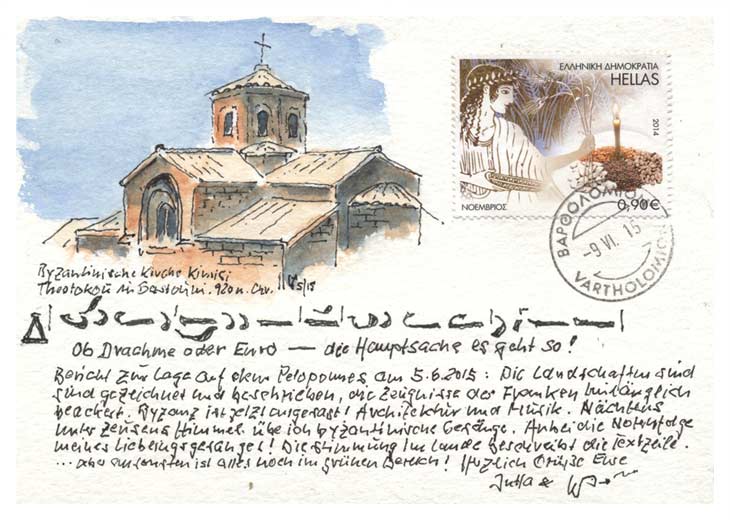 ΕΛΛΗΝΙΚΗ ΔΗΜΟΚΡΑΤΙΑ
HELLAS
2014
ΝΟΕΜΒΡΙΟΣ
0,90€
ΒΑΡΘΟΛΟΜΙΟΝ
-9 VI. 15
VARTHOLOMION
Byzantinische Kirche Kimisi
Theotokou in 920 n. Chr.
Ob Drachme oder Euro — die Hauptsache es geht so!
Bericht zur Lage auf dem Peloponnes am 5.6.2015: Die Landschaften sind
sind gezeichnet und beschrieben, die Zeugnisse der Franken hinlänglich
beachtet. Byzanz ist jetzt angesagt! Architektur und Musik. Nächtens
unter Himmel übe ich byzantinische Gesänge. Anbei die Notenfolge
meines Lieblingsgesanges! Die Stimmung im Lande beschreibt die Textzeile.
... aber ansonsten ist alles noch im grünen Bereich! Herzlich Grüße Eure
Jutta &